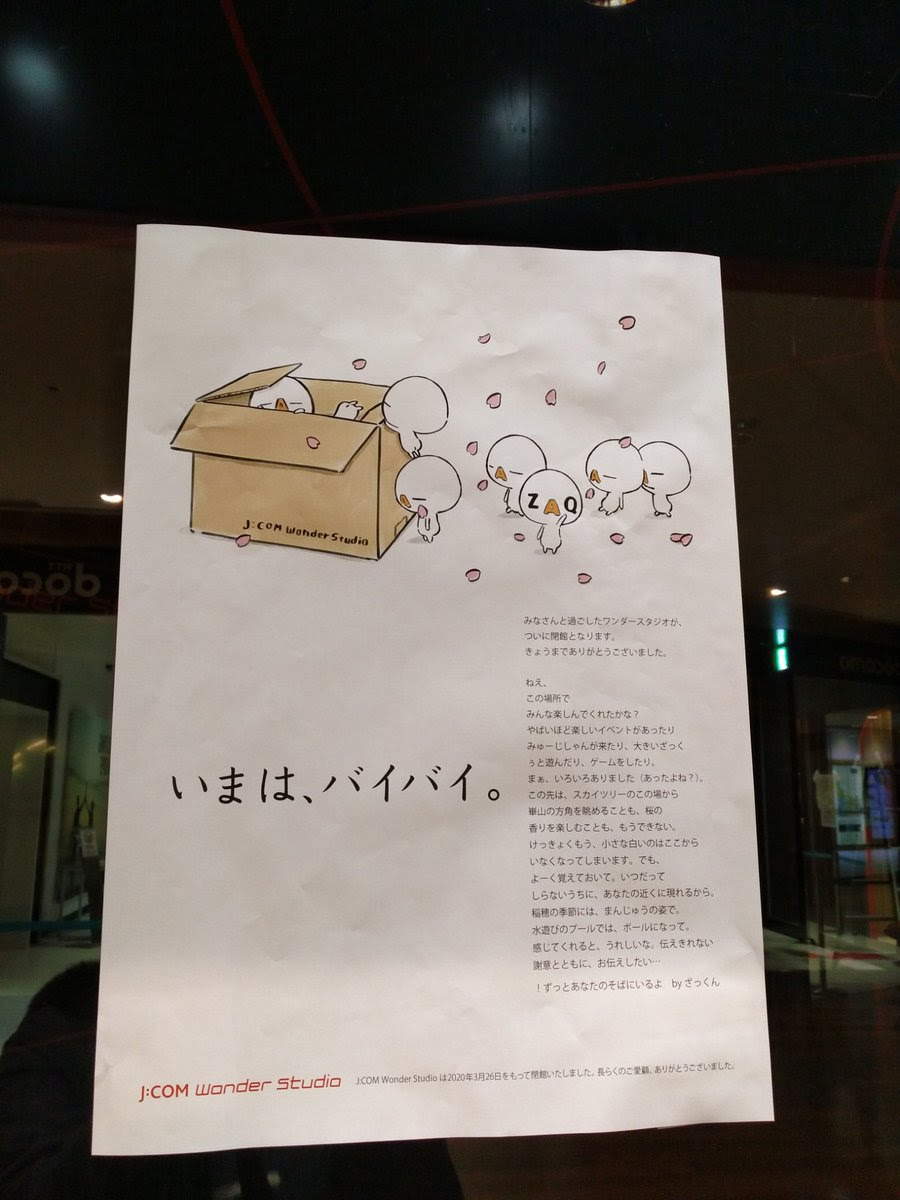 J:COM Wonder Studio
Z A Q
みなさんと過ごしたワンダースタジオが、
ついに閉館となります。
きょうまでありがとうございました。
ねえ、
この場所で
みんな楽しんでくれたかな？
やばいほど楽しいイベントがあったり
みゅーじしゃんが来たり、大きいざっく
ぅと遊んだり、ゲームをしたり。
まぁ、いろいろありました（あったよね？）。
この先は、スカイツリーのこの場から
崋山の方角を眺めることも、桜の
香りを楽しむことも、もうできない。
けっきょくもう、小さな白いのはここから
いなくなってしまいます。でも、
よーく覚えておいて。いつだって
しらないうちに、あなたの近くに現れるから。
稲穂の季節には、まんじゅうの姿で。
水遊びのプールでは、ボールになって。
感じてくれると、うれしいな。伝えきれない
謝意とともに、お伝えしたい…
！ずっとあなたのそばにいるよ by ざっくん
いまは、バイバイ。
J:COM Wonder Studio
J:COM Wonder Studio は2020年3月26日をもって閉館いたしました。長らくのご愛顧、ありがとうございました。
NTT
docomo